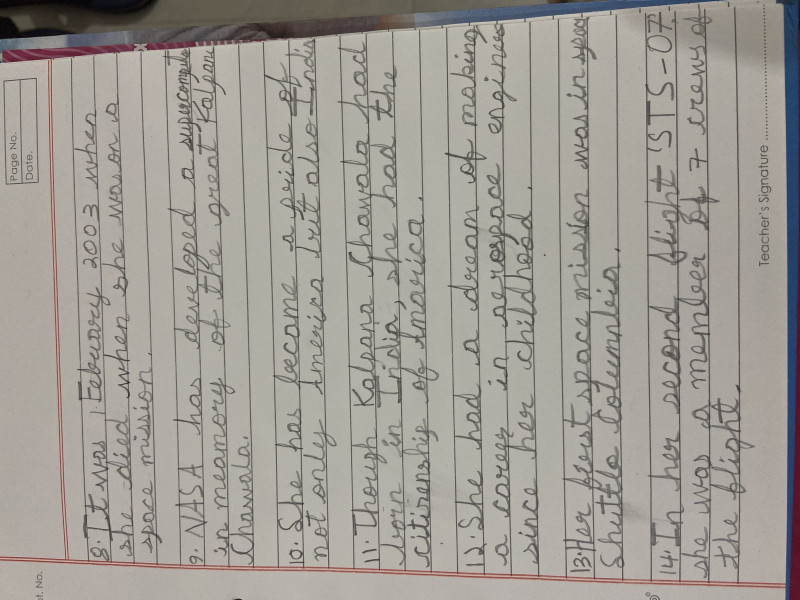 Page No.
Date.
8. It was 1 February 2003 when
she died when she was on a
space mission.
9. NASA has developed a supercomputer
in meamory of the great Kalpana
Chawala.
10. She has become a pride of
not only America but also India
11. Though Kalpana Chawala had
born in India, she had the
citizenship of America.
12. She had a dream of making
a career in aerospace engineer
since her childhood.
13. Her first space mission was in space
Shuttle Columbia.
14. In her second flight 'STS-07'
she was a member of 7 crews of
the flight.
Teacher's Signature
t. No.